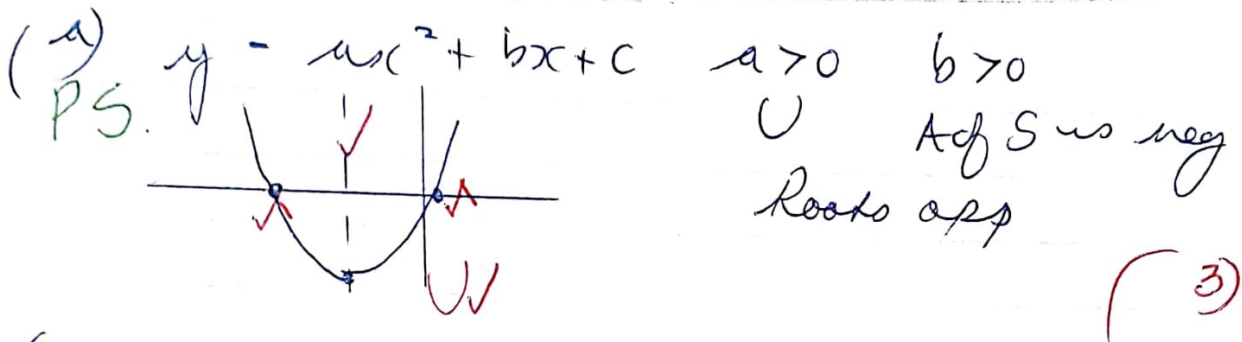 (a) y = ax² + bx + c a > 0 b > 0
PS. ∪ A of S is neg
Roots opp
∪✓
(3)